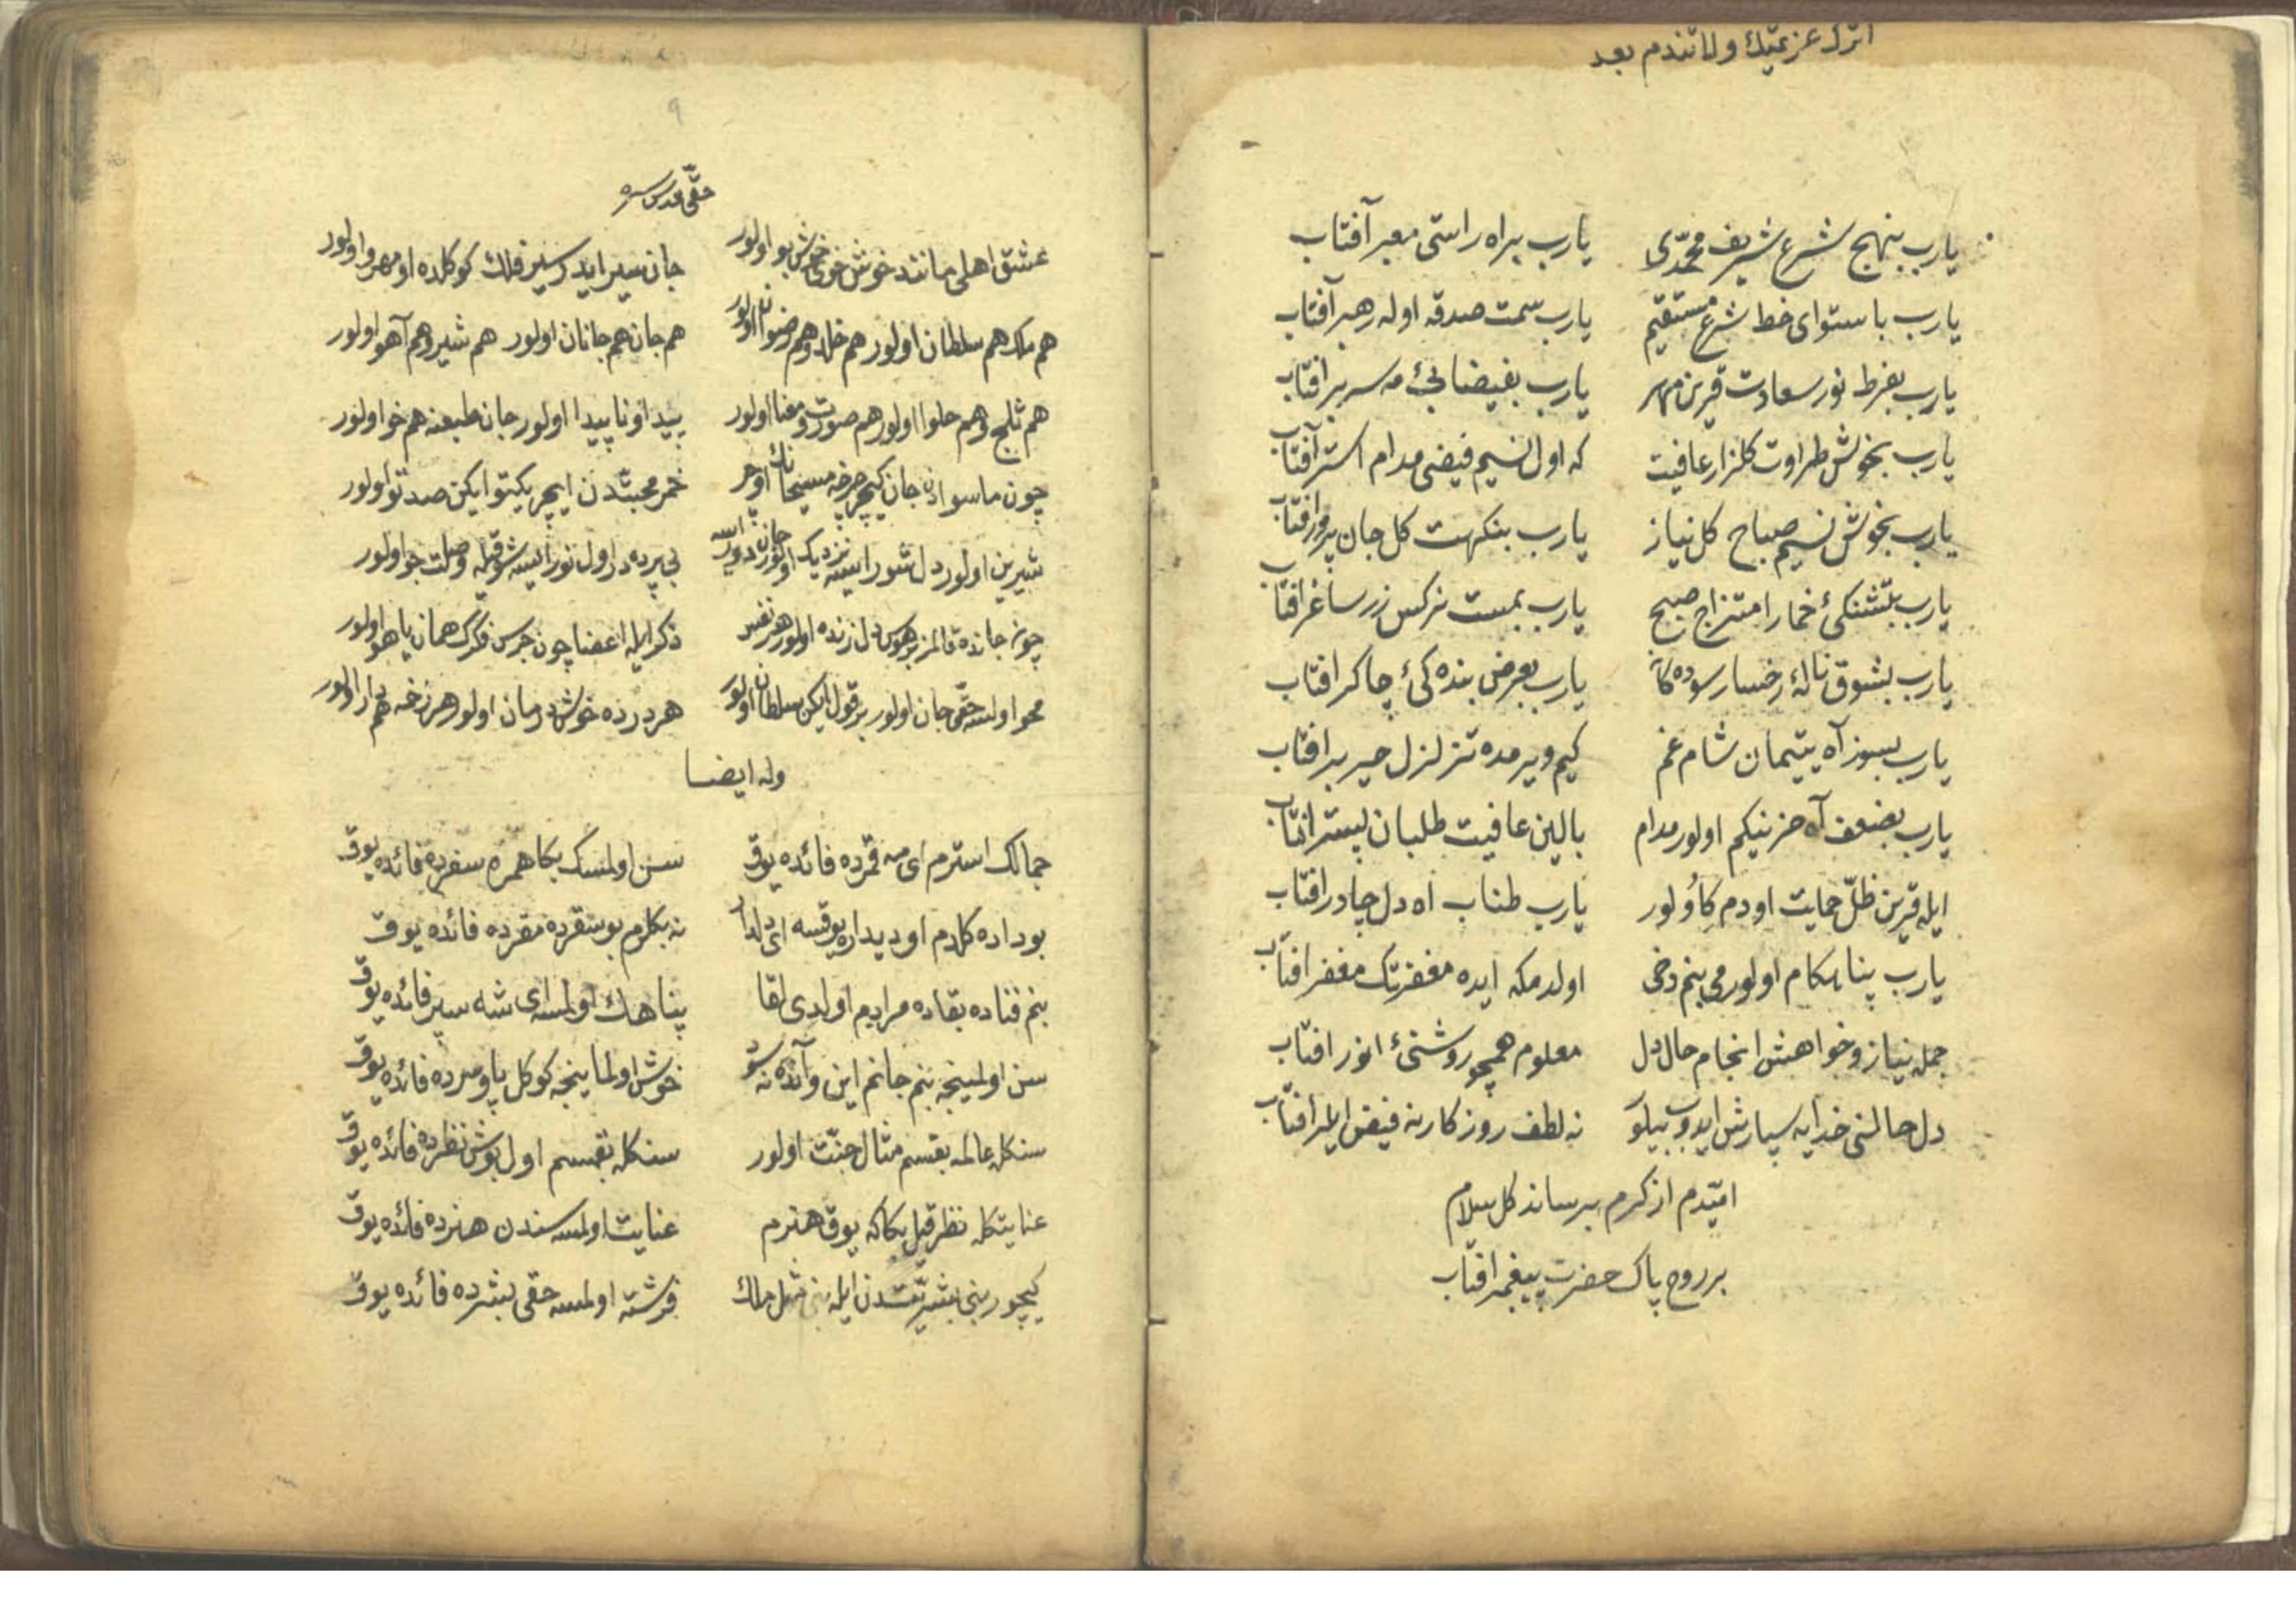 اترك عزيمتك ولا تندم بعد
يارب بنهج شرع شريف محمدى يارب براه راستى معبر آفتاب
يارب باستواى خط شرع مستقيم يارب سمت صدقه اوله رهبر آفتاب
يارب بفرط نور سعادت قرين مهر يارب بفيضابئ مه سربر افتاب
يارب بخوش طراوت كلزار عافيت كه اول نسيم فيضى مدام استر آفتاب
يارب بخوش نسيم صباح كل نياز يارب بنكهت كل جان پرور افتاب
يارب بتشنكئ خمار امتزاج صبح يارب بمست نركس زر ساغر افتاب
يارب بشوق نالۀ رخسار سوده يارب بعرض بنده كئ چاكر افتاب
يارب بسوز آه يتيمان شام غم كيم ويرمده تزلزل افتاب
يارب بضعف آه حزينيكم اولور مدام بالين عافيت طلبان بستر افتاب
ايله قرين ظل حمايت اودم كاولور يارب طناب اه دل چادر افتاب
يارب پناهكام اولورمى بنم دخى اولدمكه ايده مغفرتك مغفر افتاب
جمله نياز وخواهش انجام حال دل معلوم همچو روشنئ انور افتاب
دل حالنى خدايه سپارش ايدوب نه لطف روزكارنه فيض ايلر افتاب
اميدم از كرم برساند كل سلام
بر روح پاك حضرت پيغمبر افتاب
٩
حقى قدس سره
عشق اهلى مانند خوش خوى خوش بو اولور جان سير ايدر سير فلك كوكلده او مهرو اولور
هم ملك هم سلطان اولور هم خلد وهم رضوان اولور هم جان هم جانان اولور هم شير وهم آهو اولور
هم ثلج وهم حلوا اولور هم صورت ومعنا اولور پيدا و ناپيدا اولور جان طبعنه هم خو اولور
چون ماسوادن جان كيچر چرخه مسيحانك اوچر خمر محبتدن ايچر يكتو ايكن صد تو اولور
شيرين اولور دل شور ايسه نزديك اولور جان دور ايسه بى پرده در اول نور ايسه شوقيله وصلت جو اولور
چونه جانده قالمز بر هوس دل زنده اولور هر نفس ذكر ايله اعضا چون جرس فكرك همان ياهو اولور
محو اولسه حقى جان اولور بر قول ايكن سلطان اولور هر درده خوش درمان اولور هر زخمه هم دارو اولور
وله ايضا
جمالك استرم اى مه قمرده فائده يوق سن اولمسك بكا همره سفرده فائده يوق
بو داده كلدم او ديداره يوقسه اى دلدار نه بكلرم بو سقرده مقرده فائده يوق
بنم فناده بقاده مراديم اولدى لقا پناهك اولمسه اى شه سپر فائده يوق
سن اولمينجه بنم جانم اين وآنده نه سود خوش اولماينجه كوكل پاوسرده فائده يوق
سنكله عالمه بقسم مثال جنت اولور سنكله بقمسم اول بوش نظرده فائده يوق
عنايتكله نظر قيل بكا كه يوق هنرم عنايت اولمسه سندن هنرده فائده يوق
كيچور بنى بشريتدن ايله مثل ملك فرشته اولمسه حقى بشرده فائده يوق